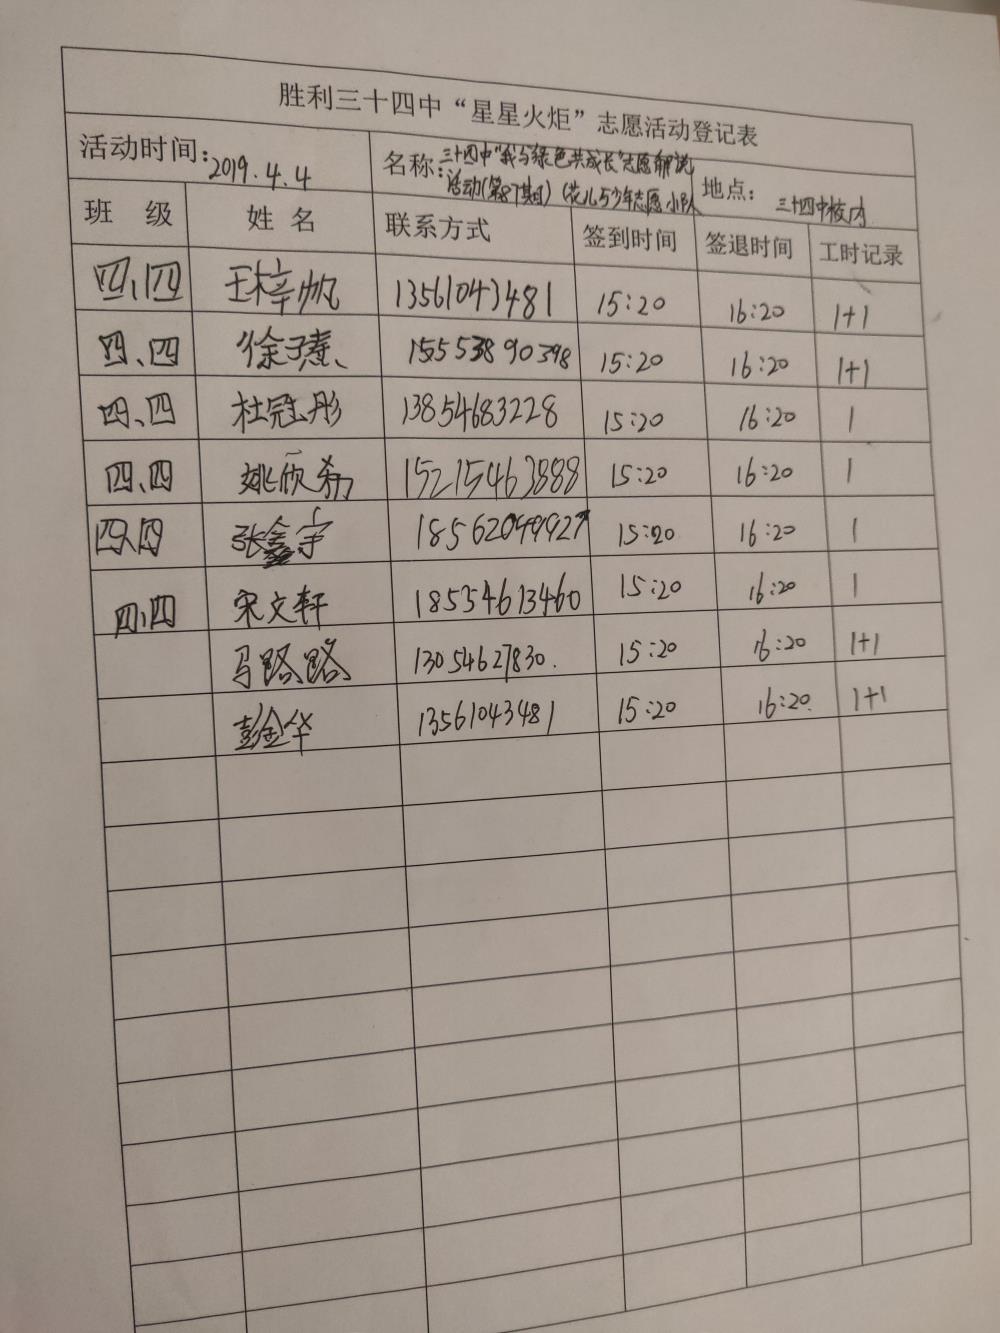 胜利三十四中“星星火炬”志愿活动登记表
活动时间：2019.4.4 名称：三十四中“我与绿色共成长”志愿解说 地点：三十四中校内
活动(第87期)(花儿与少年志愿小队
班 级 姓 名 联系方式 签到时间 签退时间 工时记录
四、四 王梓帆 13561043481 15:20 16:20 1+1
四、四 徐子 15553890398 15:20 16:20 1+1
四、四 杜冠彤 13854683228 15:20 16:20 1
四、四 姚欣希 15215463888 15:20 16:20 1
四、四 张鑫宇 18562049927 15:20 16:20 1
四、四 宋文轩 18534613460 15:20 16:20 1
马路路 13054627830. 15:20 16:20 1+1
彭金华 13561043481 15:20 16:20 1+1